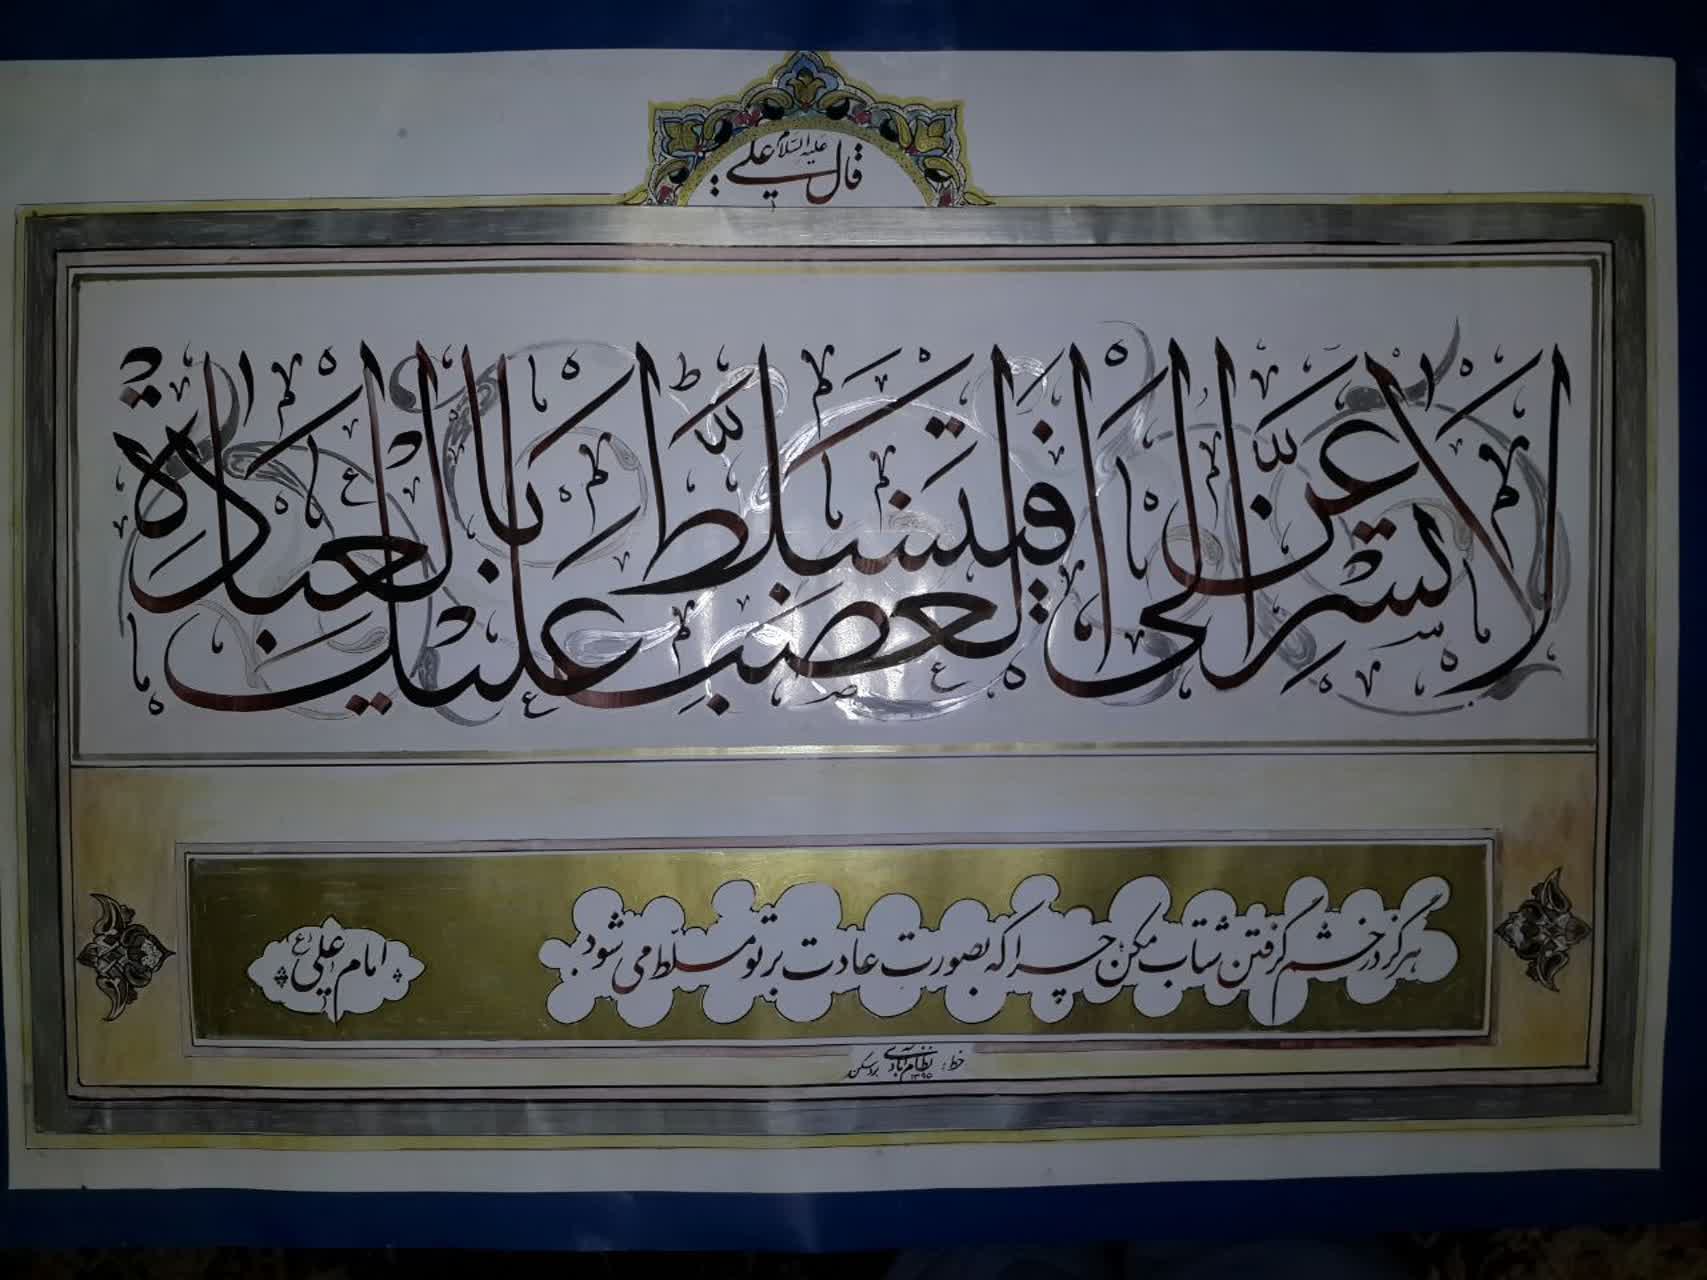 قال علي علیه السلام :
لا تسرعن الی الغضب فیتسلط علیک بالعبادة
هرگز در خشم گرفتن شتاب مکن؛ چرا که بصورت عادت بر تو مسلّط می شود.
امام علی (ع)
خط: نظام آبادی بردسکن
۱۳۹۵